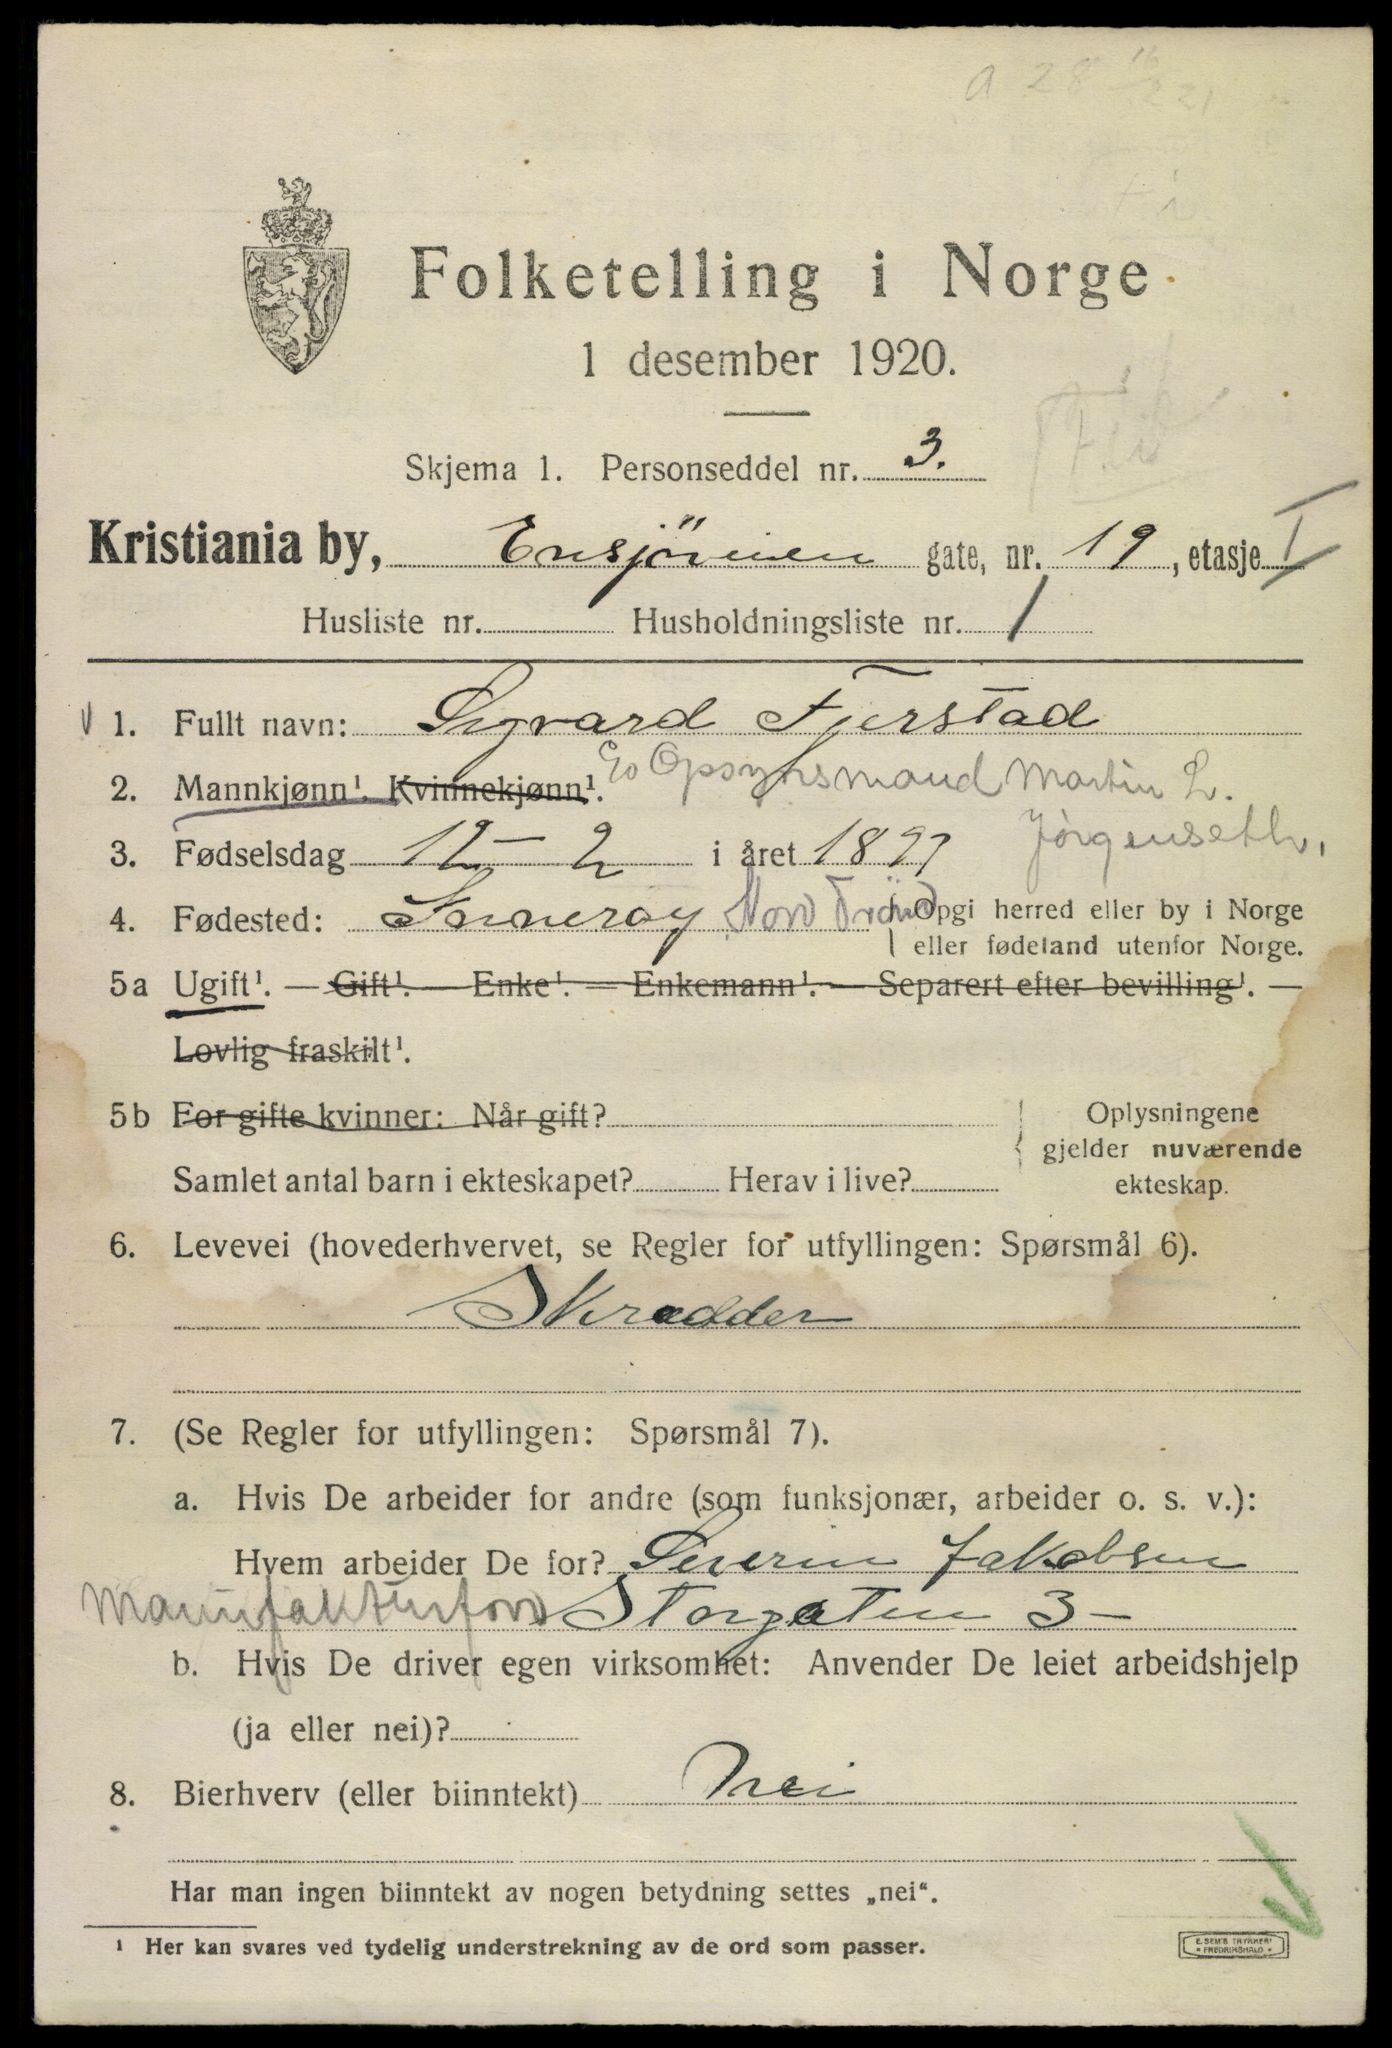 Folketelling i Norge
1 desember 1920.
Skjema 1. Personseddel nr. 3.
Kristiania by, Ensjöveien gate, nr. 19, etasje I
Husliste nr. Husholdningsliste nr. 1
1. Fullt navn: Sigvard Fjerstad
2. Mannkjønn¹. Kvinnekjønn¹. Opsynsmand Martin L.
Jørgenseth.
3. Fødselsdag 12 - 2 i året 1897
4. Fødested: Nord Trönd Opgi herred eller by i Norge
eller fødeland utenfor Norge.
5a Ugift¹. — Gift¹. — Enke¹. — Enkemann¹. — Separert efter bevilling¹. —
Lovlig fraskilt¹.
5b For gifte kvinner: Når gift?
Samlet antal barn i ekteskapet? Herav i live?
Oplysningene
gjelder nuværende
ekteskap.
6. Levevei (hovederhvervet, se Regler for utfyllingen: Spørsmål 6).
Skredder
7. (Se Regler for utfyllingen: Spørsmål 7).
a. Hvis De arbeider for andre (som funksjonær, arbeider o. s. v.):
Hvem arbeider De for? Severin Jakobsen
Manufakturforr Storgaten 3 -
b. Hvis De driver egen virksomhet: Anvender De leiet arbeidshjelp
(ja eller nei)?
8. Bierhverv (eller biinntekt) Nei
Har man ingen biinntekt av nogen betydning settes „nei“.
¹ Her kan svares ved tydelig understrekning av de ord som passer.
E. SEM'S TRYKKERI
FREDRIKSHALD